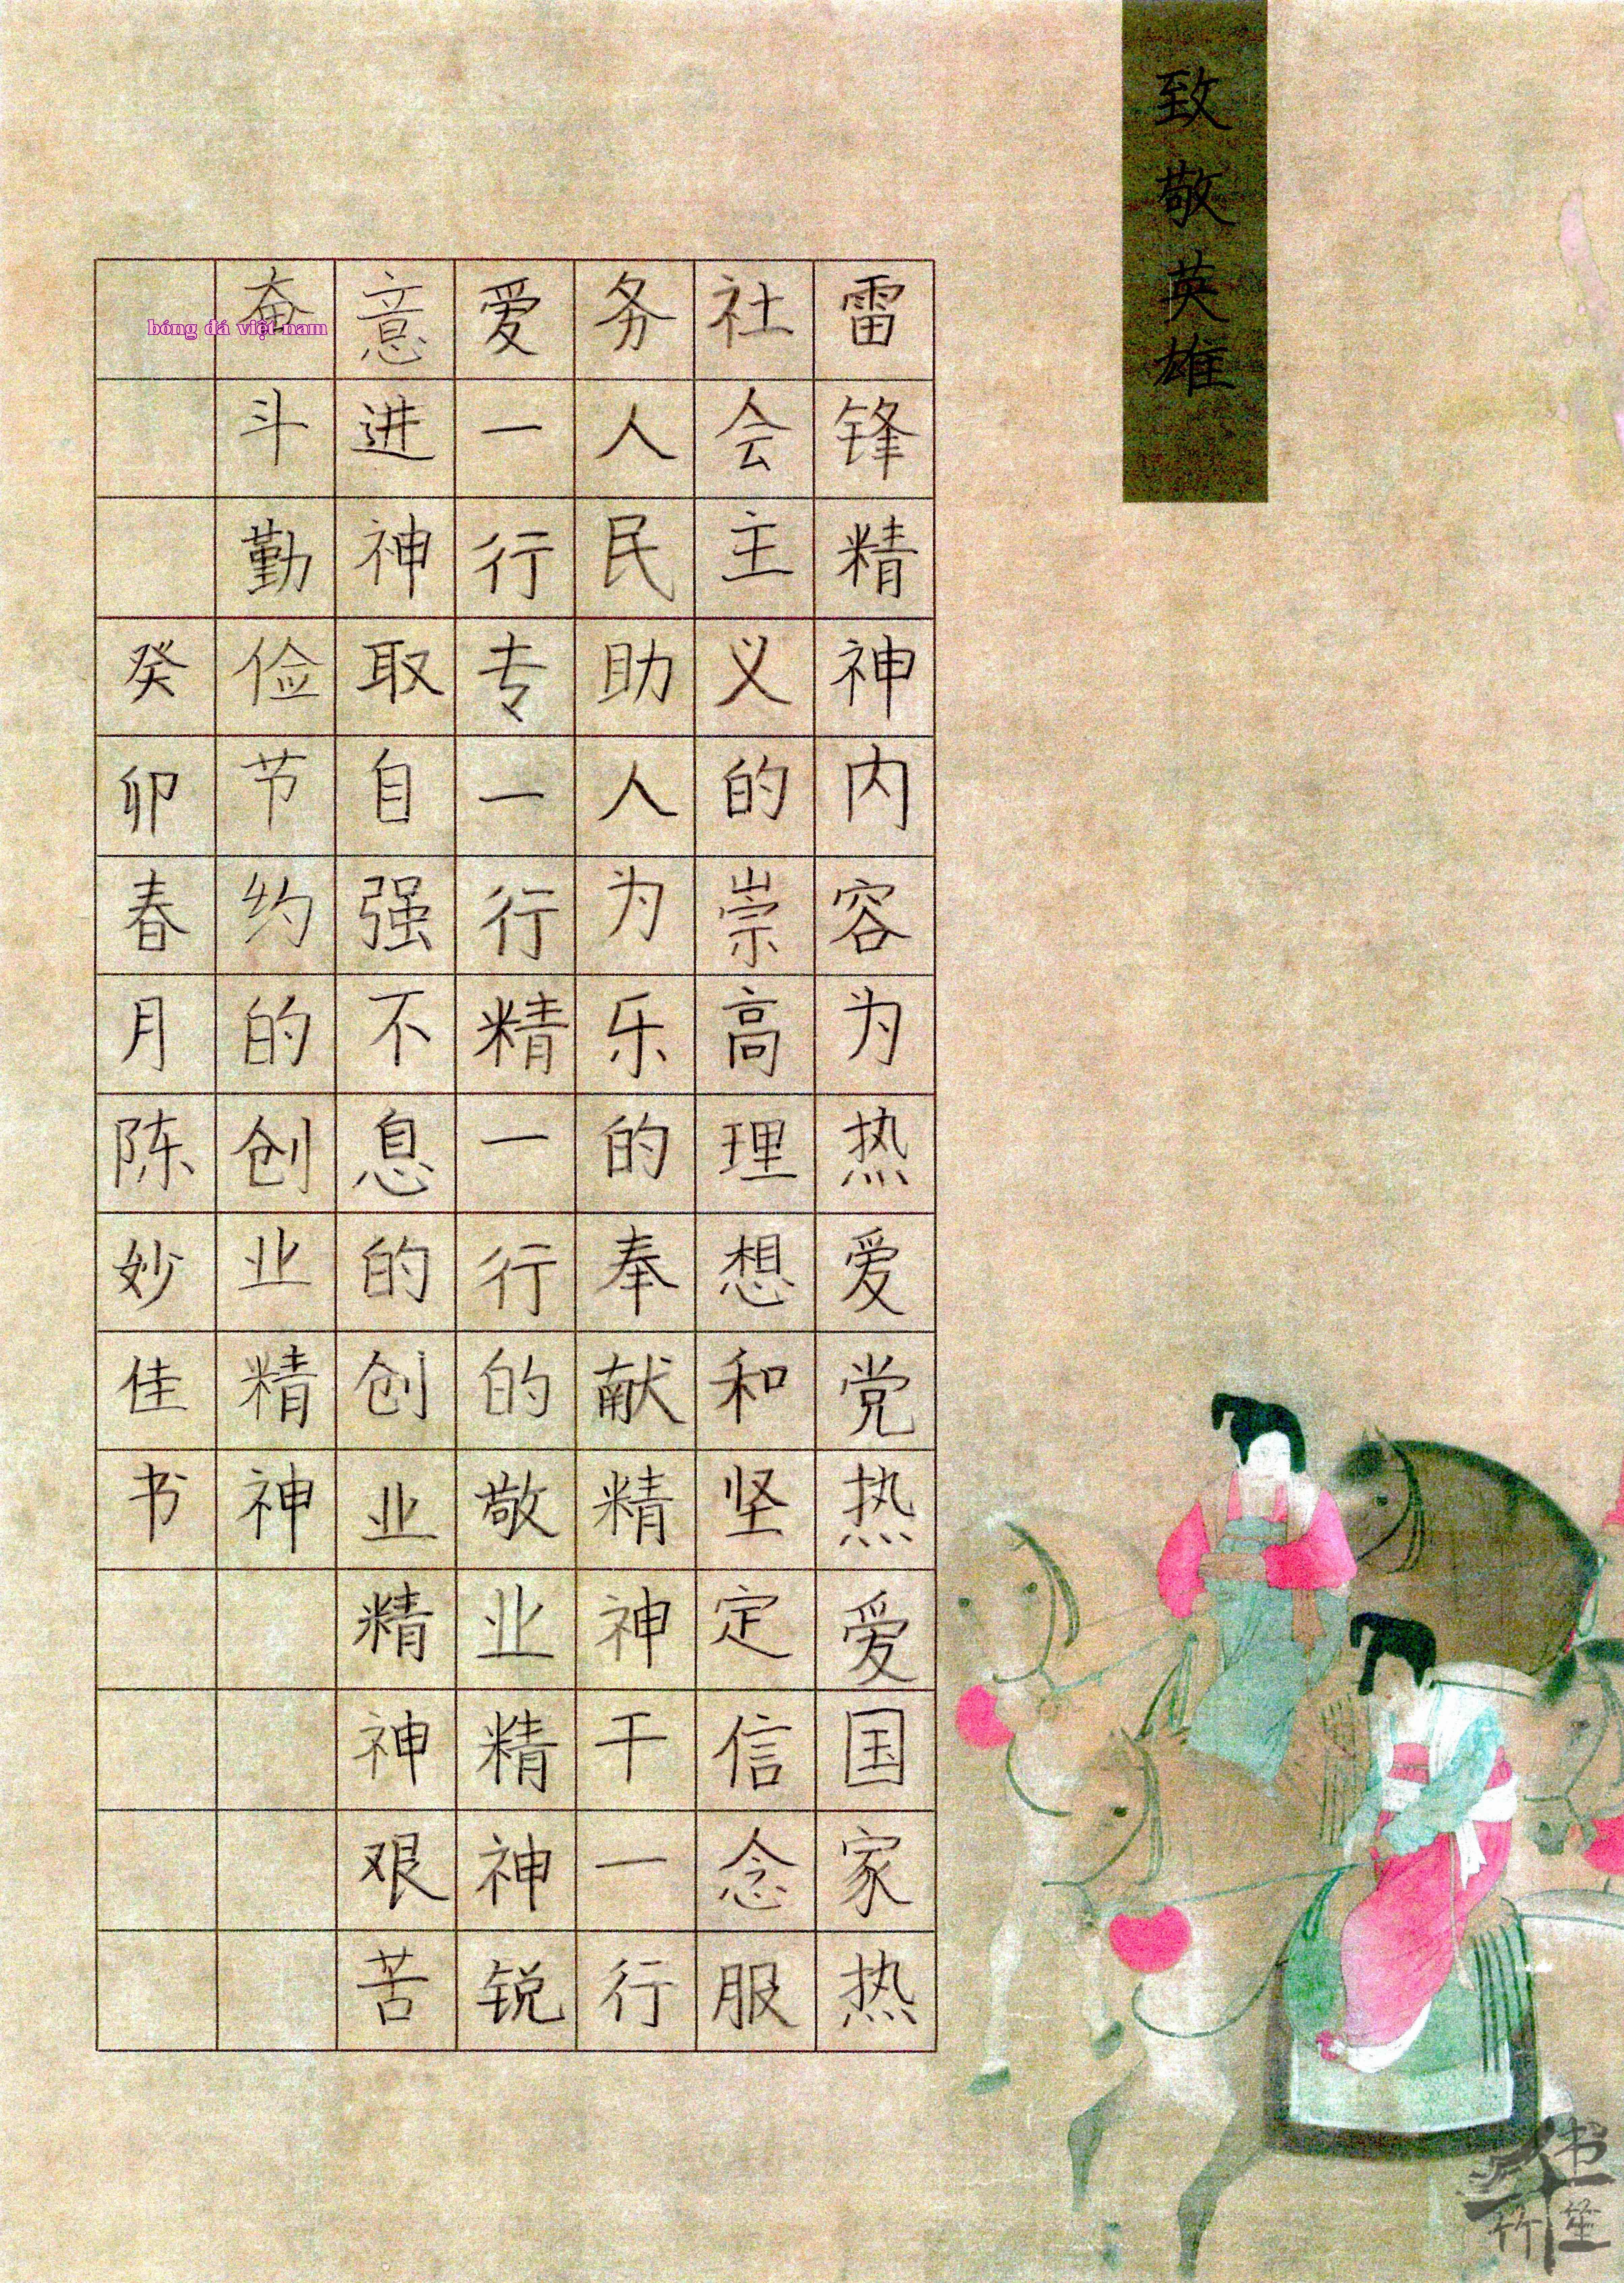 致敬英雄
雷锋精神内容为热爱党热爱国家热
社会主义的崇高理想和坚定信念服
务人民助人为乐的奉献精神干一行
爱一行专一行精一行的敬业精神锐
意进神取自强不息的创业精神艰苦
奋斗勤俭节约的创业精神
癸卯春月陈妙佳书
bóng đá việt nam